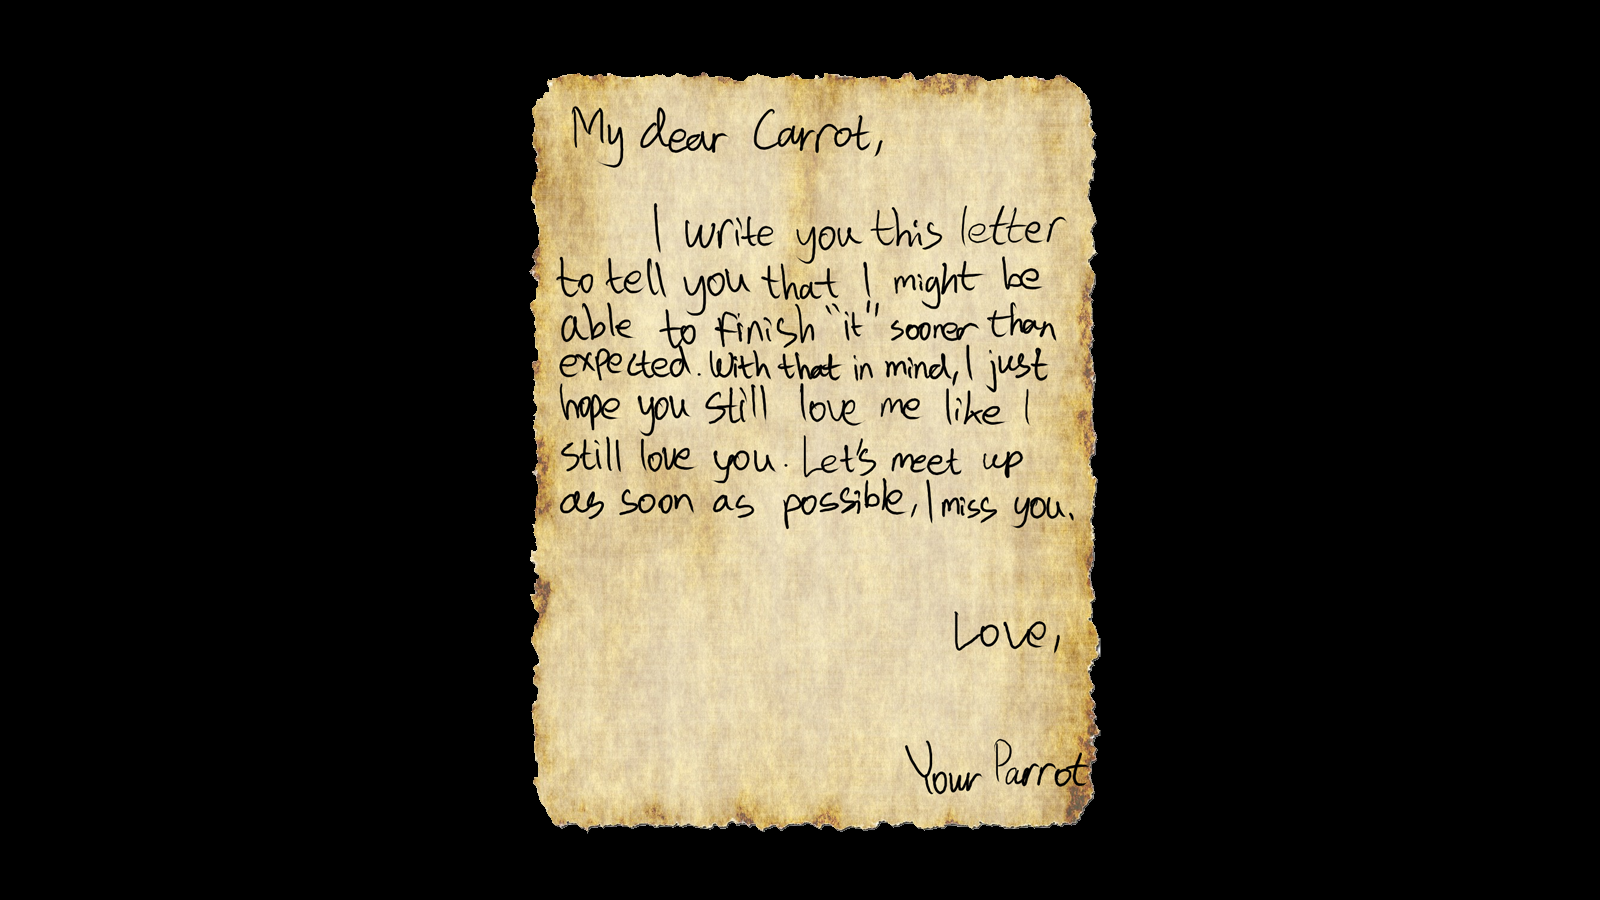 My dear Carrot,
I write you this letter
to tell you that I might be
able to finish "it" sooner than
expected. With that in mind, I just
hope you still love me like I
still love you. Let's meet up
as soon as possible, I miss you.
Love,
Your Parrot